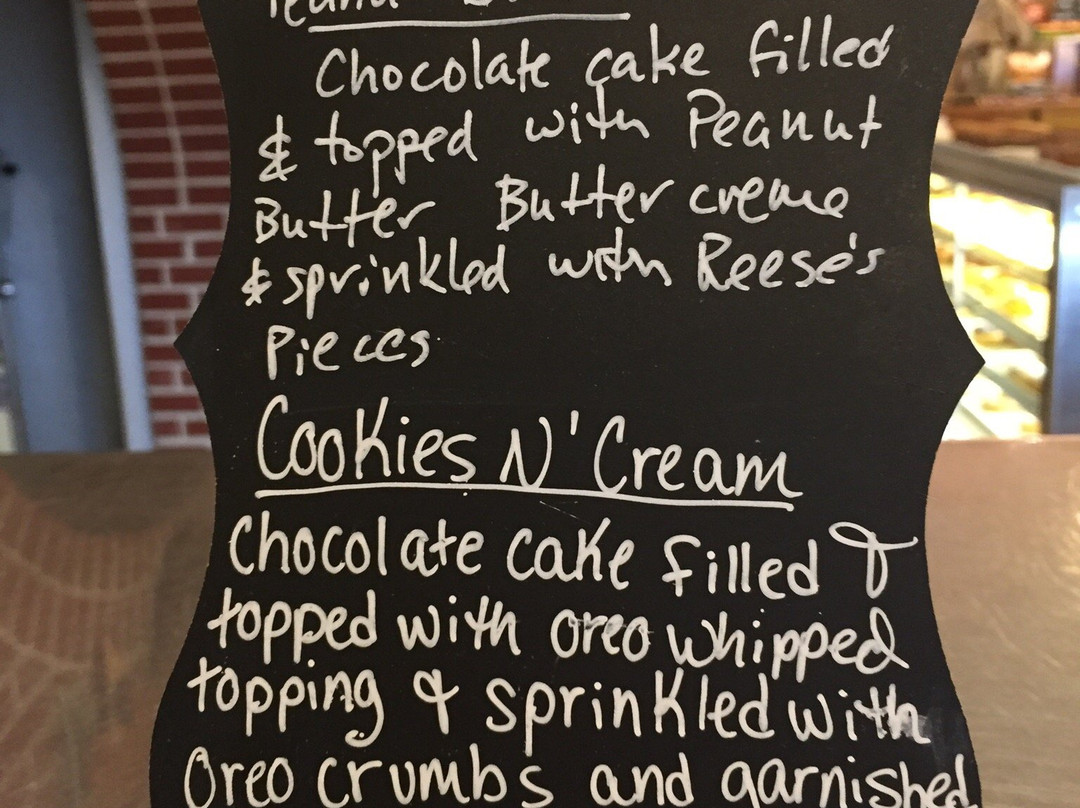 Chocolate cake filled
& topped with Peanut
Butter Buttercreme
& sprinkled with Reese's
Pieces
Cookies N' Cream
Chocolate cake filled &
topped with oreo whipped
topping & sprinkled with
Oreo crumbs and garnished